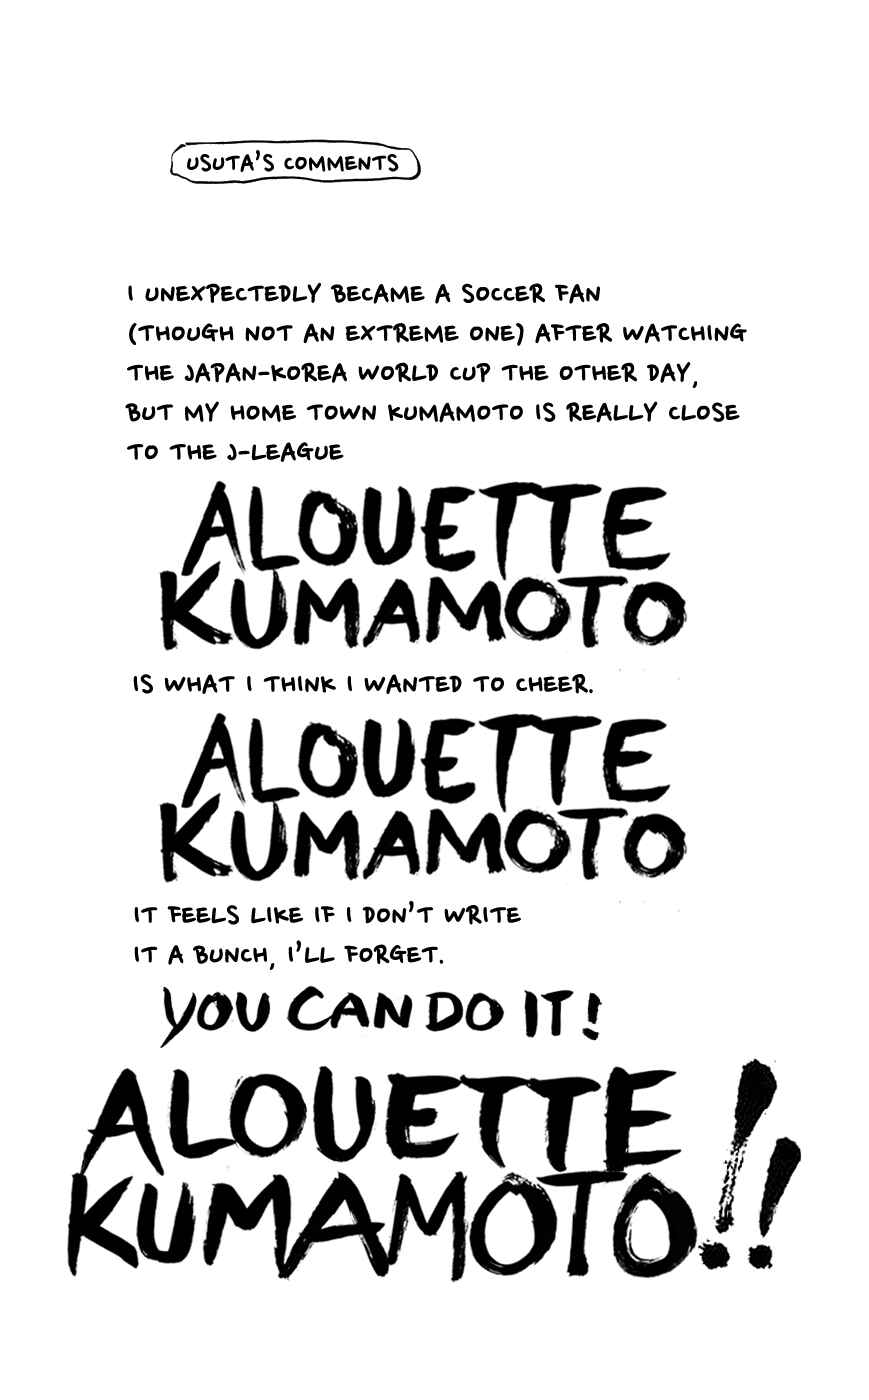 USUTA'S COMMENTS
I UNEXPECTEDLY BECAME A SOCCER FAN
(THOUGH NOT AN EXTREME ONE) AFTER WATCHING
THE JAPAN-KOREA WORLD CUP THE OTHER DAY,
BUT MY HOME TOWN KUMAMOTO IS REALLY CLOSE
TO THE J-LEAGUE
ALOUETTE
KUMAMOTO
IS WHAT I THINK I WANTED TO CHEER.
ALOUETTE
KUMAMOTO
IT FEELS LIKE IF I DON'T WRITE
IT A BUNCH, I'LL FORGET.
YOU CAN DO IT!
ALOUETTE
KUMAMOTO!!